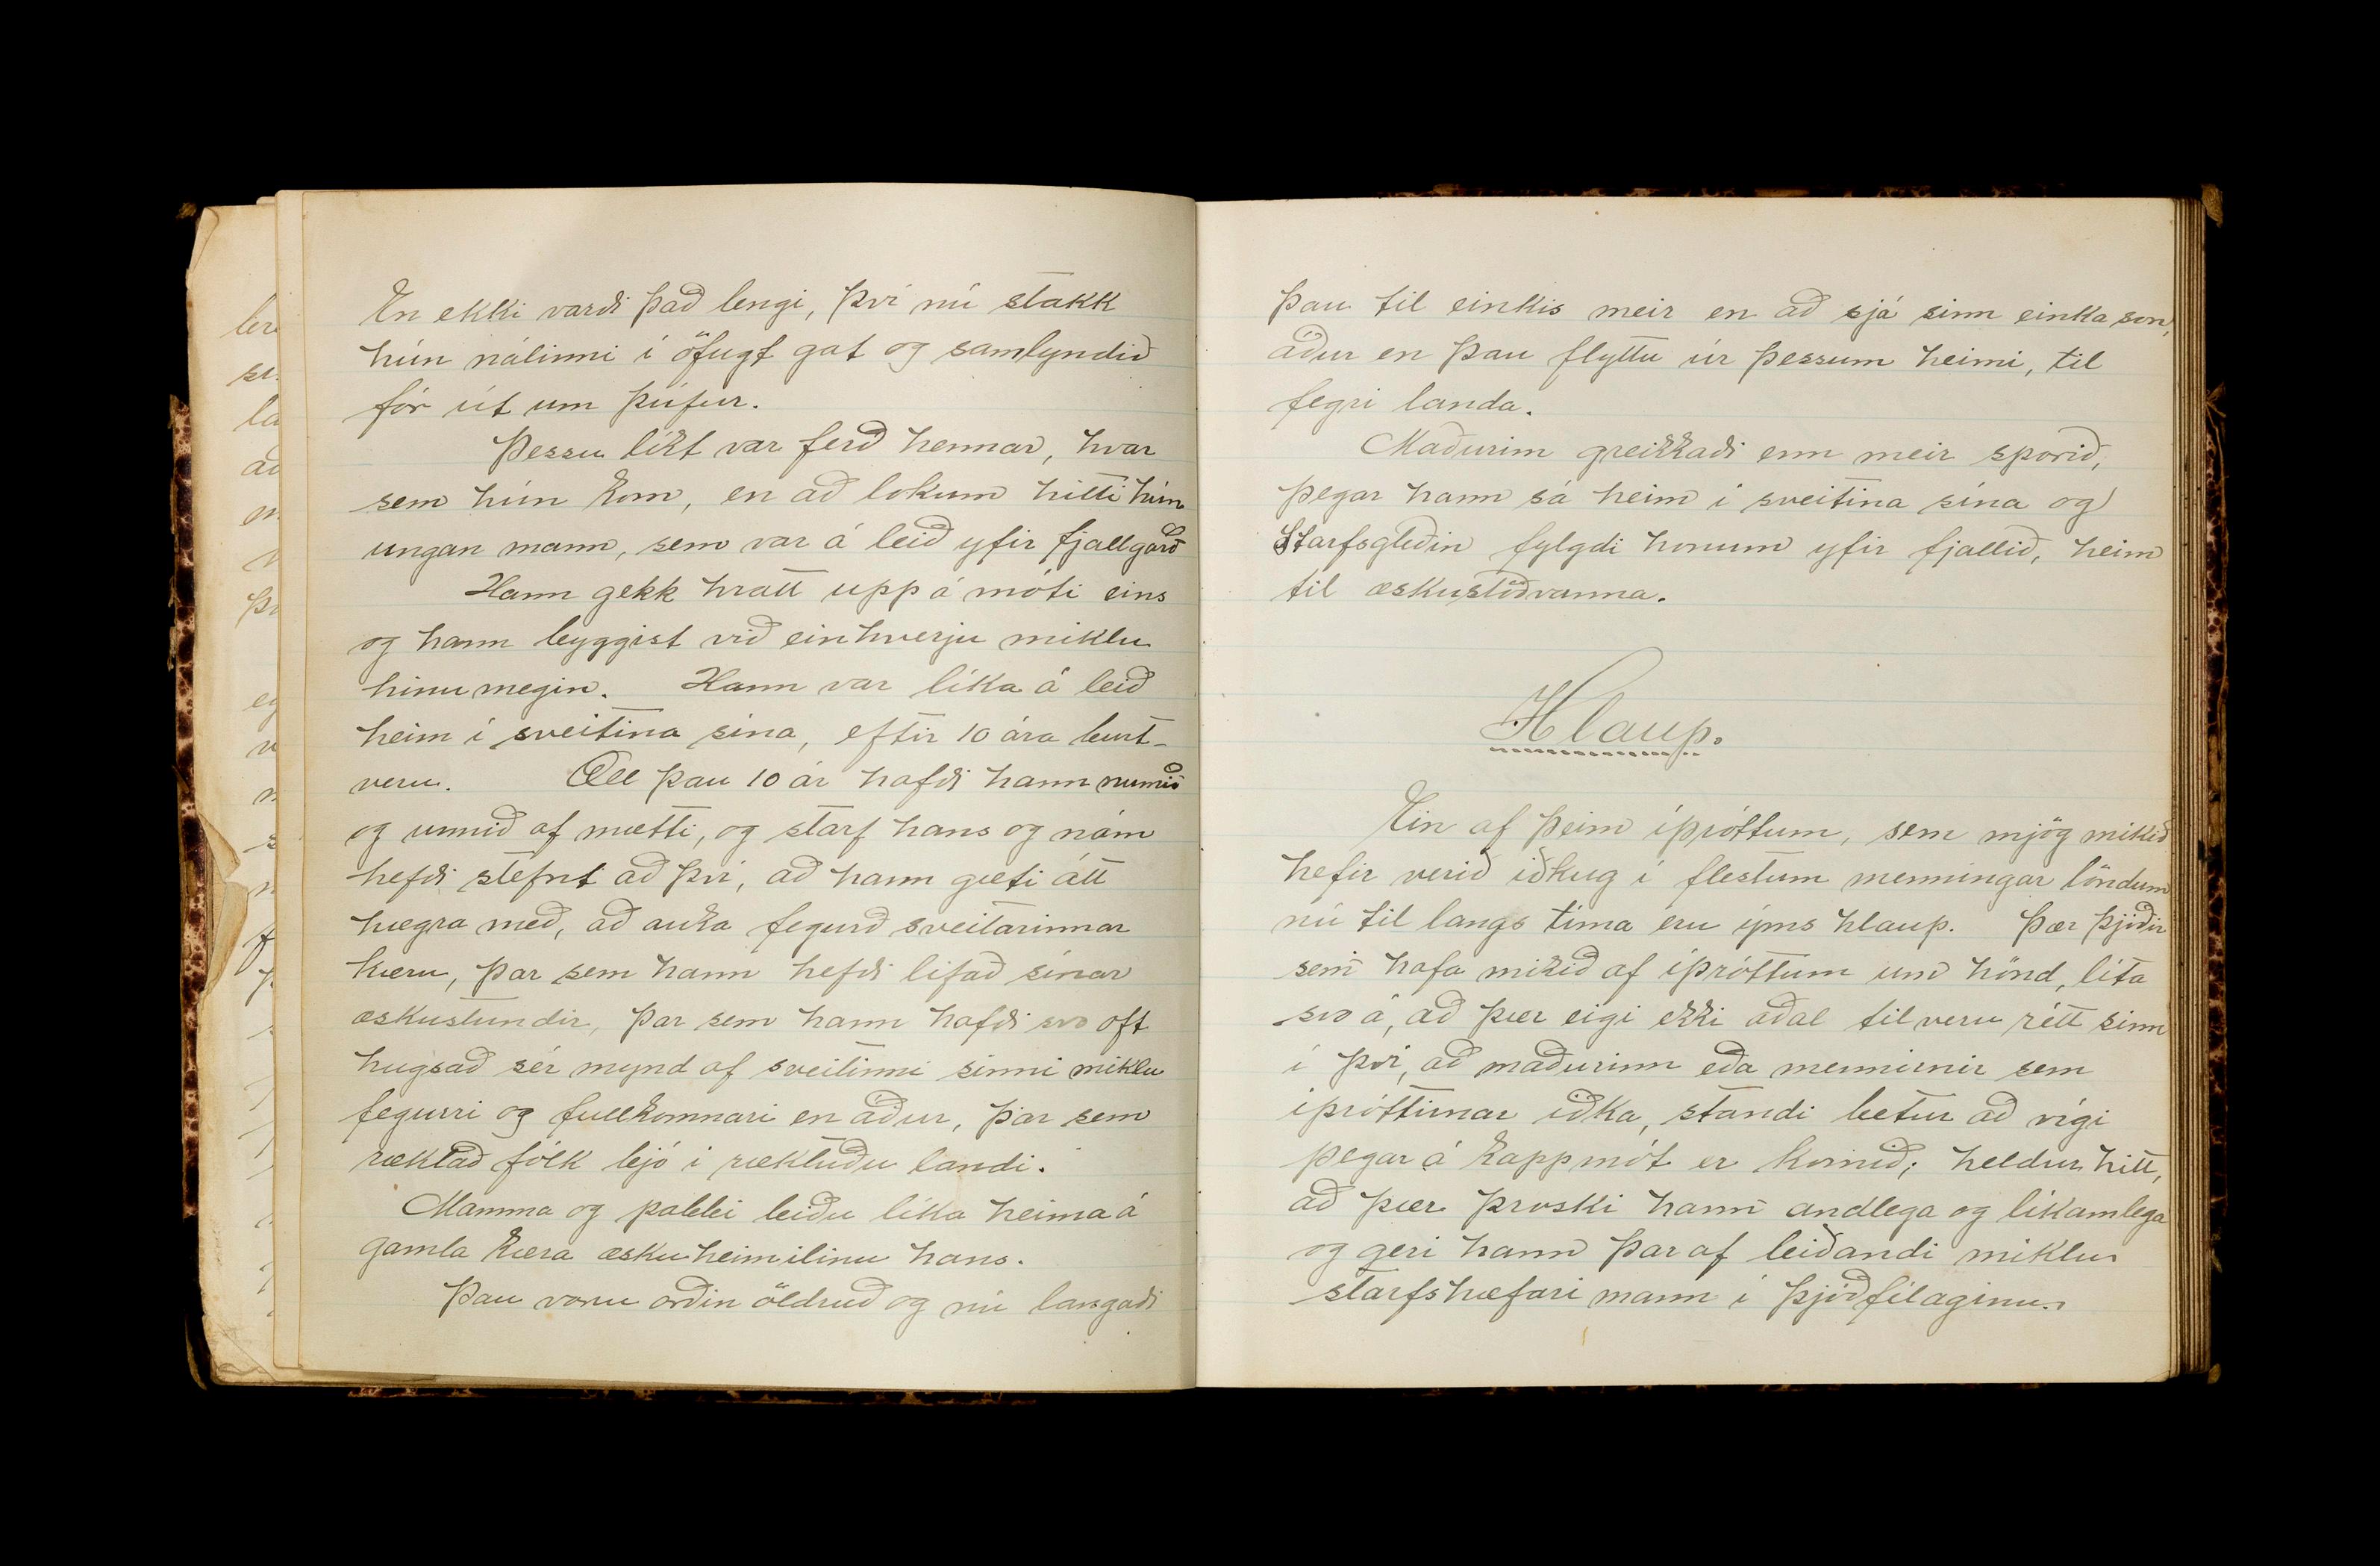 En ekki varði það lengi, því nú stakk
hún nálinni í öfugt gat og samlyndið
fór út um þúfur.
Þessu líkt var ferð hennar, hvar
sem hún kom, en að lokum hitti hún
ungan mann, sem var á leið yfir fjallgarð
Hann gekk hratt upp á móti eins
og hann byggist við einhverju miklu
hinu megin. Hann var líka á leið
heim í sveitina sína, eftir 10 ára burt-
veru. Öll þau 10 ár hafði hann numið
og unnið af mætti, og starf hans og nám
hefði stefnt að því, að hann gæti átt
hægra með, að auka fegurð sveitarinnar
kæru, þar sem hann hefði lifað sínar
æskustundir, þar sem hann hafði svo oft
hugsað sér mynd af sveitinni sinni miklu
fegurri og fullkomnari en áður, þar sem
ræktað fólk bjó í ræktuðu landi.
Mamma og pabbi biðu líka heima á
gamla kæra æskuheimilinu hans.
Þau voru orðin öldruð og nú langaði
þau til einkis meir en að sjá sinn einka son,
áður en þau flyttu úr þessum heimi, til
fegri landa.
Maðurinn greikkaði enn meir sporið,
þegar hann sá heim í sveitina sína og
Starfsgleðin fylgdi honum yfir fjallið, heim
til æskustöðvanna.
Hlaup.
Ein af þeim íþróttum, sem mjög mikið
hefir verið iðkug í flestum menningar löndum
nú til langs tíma eru ýms hlaup. Þær þjóðir
sem hafa mikið af íþróttum um hönd, líta
svo á, að þær eigi ekki aðal tilveru rétt sinn
í því, að maðurinn eða mennirnir sem
íþróttirnar iðka, standi betur að vígi
þegar á kappmót er komið; heldur hitt,
að þær þroski hann andlega og líkamlega
og geri hann þar af leiðandi miklu
starfshæfari mann í þjóðfélaginu.